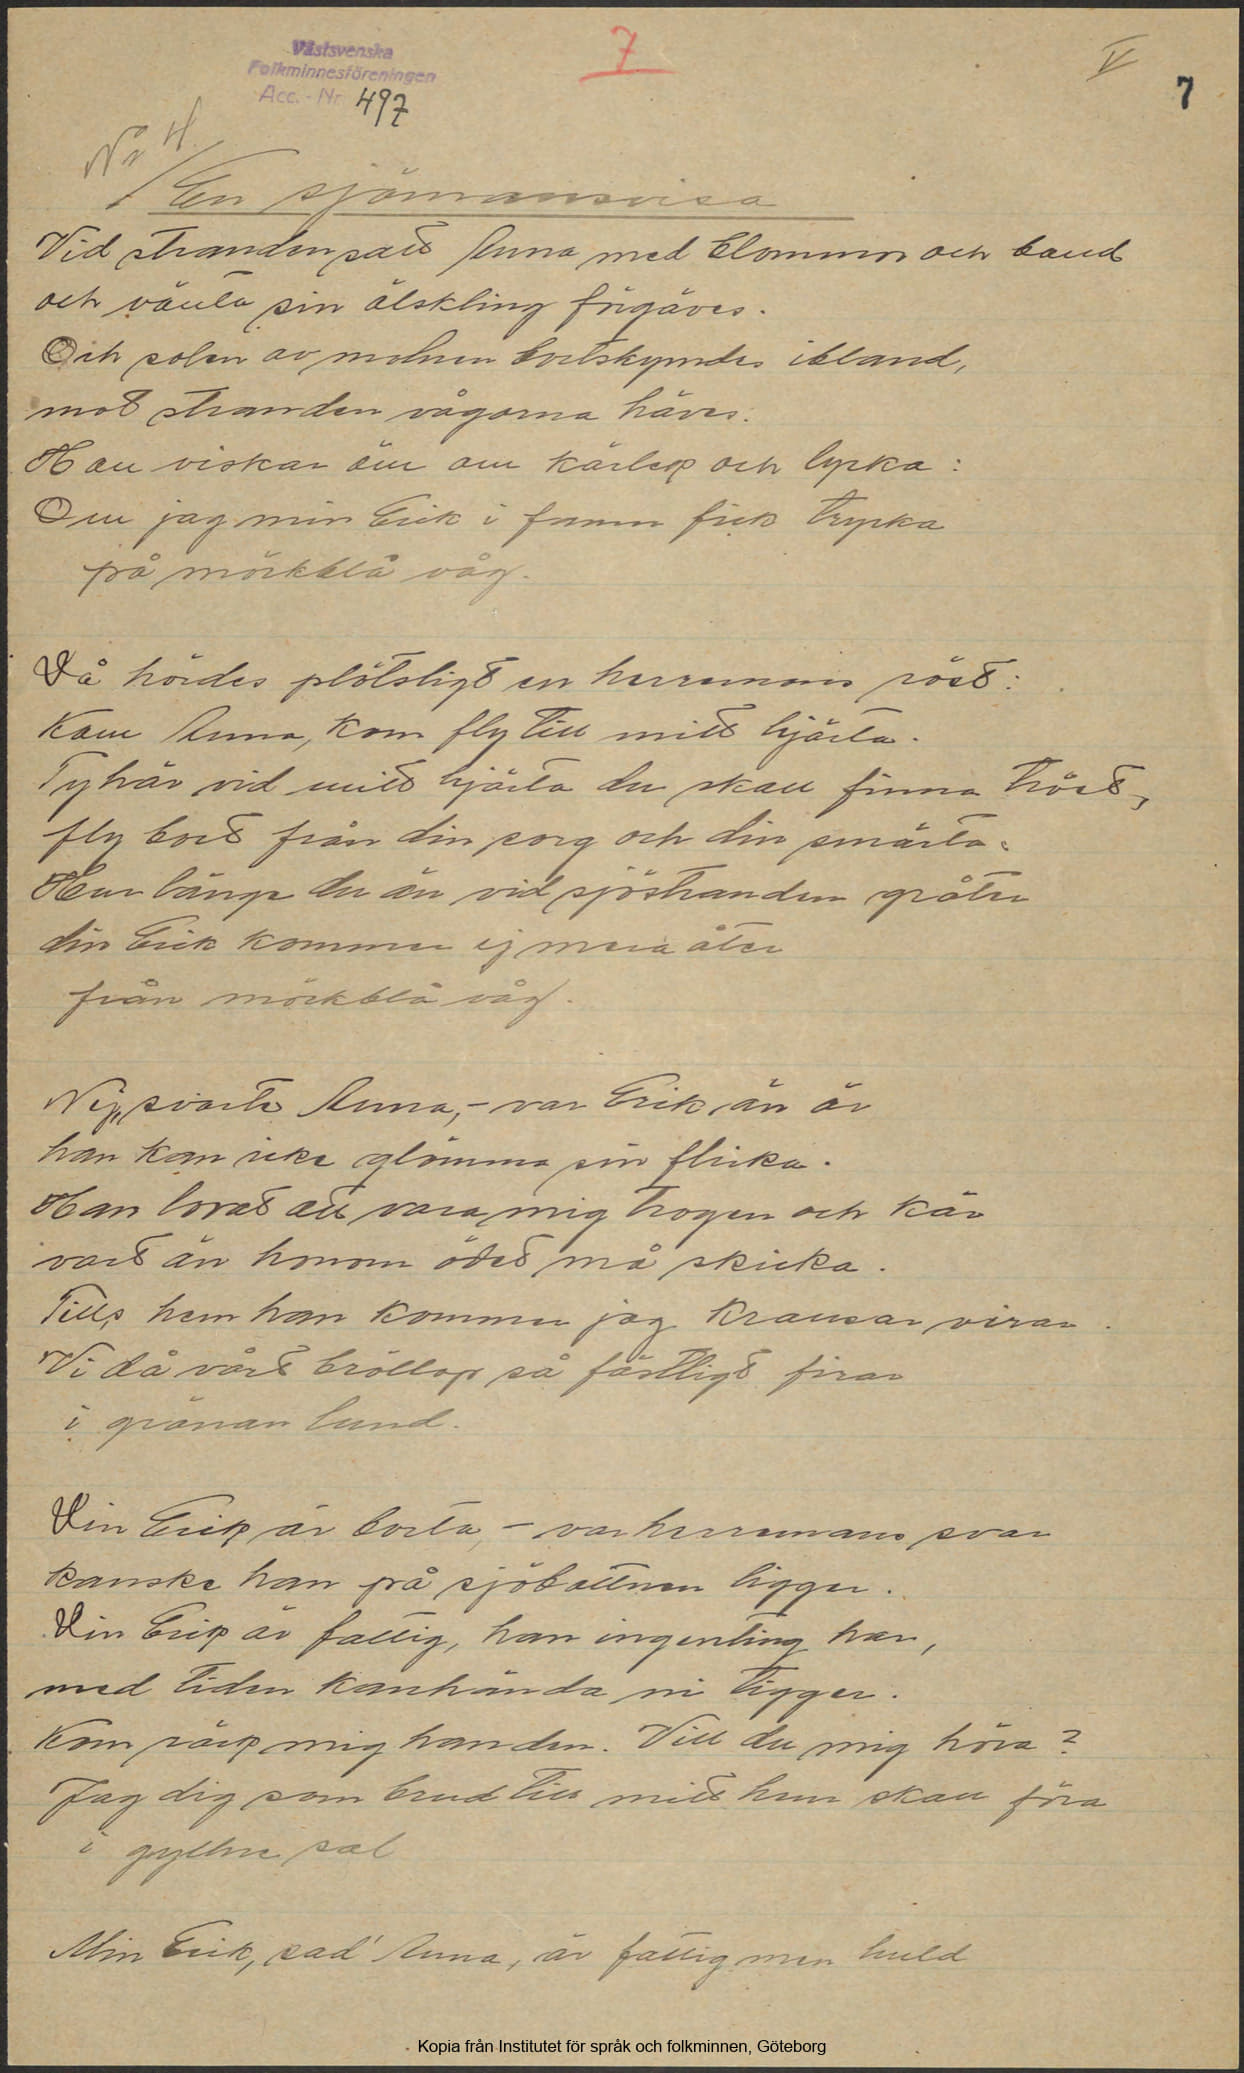 Västsvenska
Folkminnesföreningen
Acc. - Nr 497
7
V
7
Nr 4.
En sjömansvisa
Vid stranden satt Anna med blommor och band
och vänta sin älskling förgäves.
Och solen av molnen bortskymdes ibland,
mot stranden vågorna häves.
Hon viskar öm om kärlek och lycka:
Om jag min Erik i famn fick trycka
på mörkblå våg.
Då hördes plötsligt en herremans röst:
Kom Anna, kom fly till mitt hjärta.
Ty här vid mitt hjärta du skall finna tröst,
fly bort från din sorg och din smärta.
Hur länge du än vid sjöstranden gråter
din Erik kommer ej mera åter
från mörkblå våg.
Nej, svarte Anna, - var Erik än är
han kan icke glömma sin flicka.
Han lovat att vara mig trogen och kär
vart än honom ödet må skicka.
Tills hem han kommer jag kransar virar.
Vi då vårt bröllop så fästligt firar
i grönan lund.
Din Erik är borta, - var herremans svar
kanske han på sjöbottnen ligger.
Din Erik är fattig, han ingenting har,
med tiden kanhända ni tigger.
Kom räck mig handen. Vill du mig höra?
Jag dig som brud till mitt hem skall föra
i gyllne sal
Min Erik, sad' Anna, är fattig men huld
Kopia från Institutet för språk och folkminnen, Göteborg